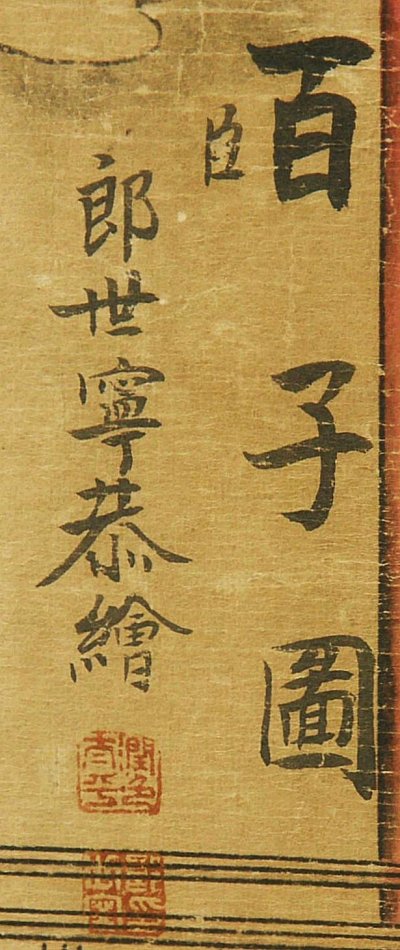 百子圖
臣
郎世寧恭繪